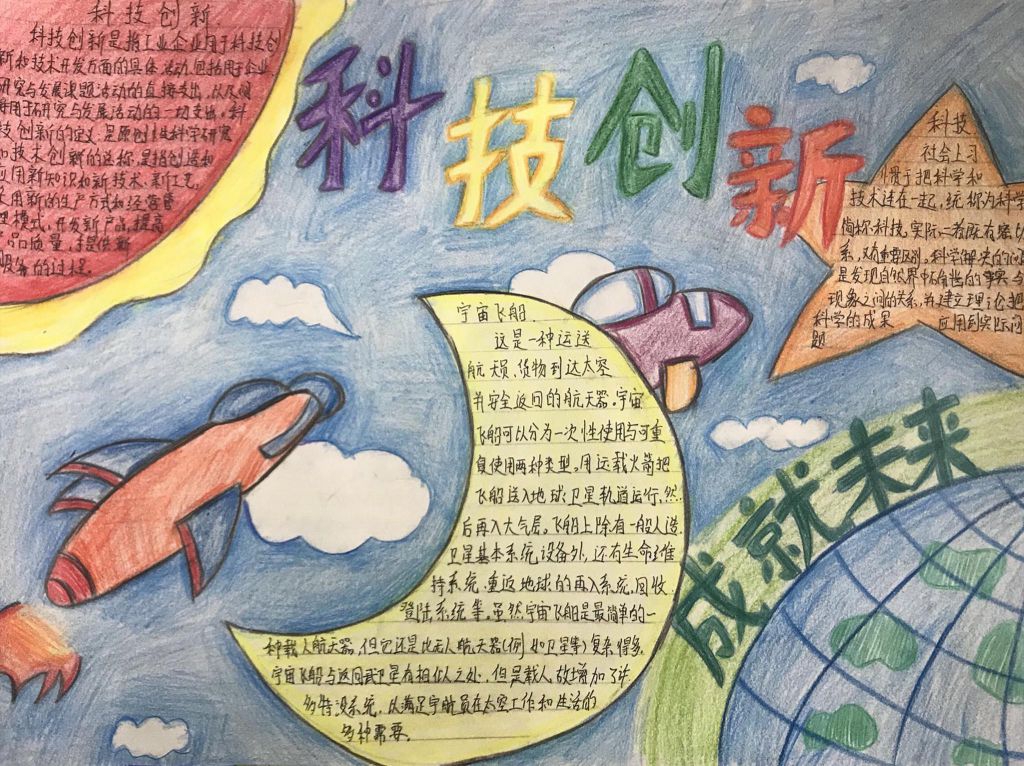 科技创新
科技创新
科技创新是指工业企业用于科技创
新和技术开发方面的具体活动,包括用于企业
研究与发展课题活动的直接支出,以及
用于研究与发展活动的一切支出。科
技创新的定义是原创性科学研究
和技术创新的总称,是指创造和
应用新知识和新技术、新工艺,
采用新的生产方式和经营管
理模式,开发新产品,提高
产品质量,提供新
服务的过程。
科技
社会上习
惯于把科学和
技术连在一起,统称为科学
简称科技,实际二者既有密切
系,又有重要区别。科学解决的问
是发现自然界中的事实与
现象之间的关系,并建立理论把
科学的成果 应用到实际问
题
宇宙飞船
这是一种运送
航天员、货物到达太空
并安全返回的航天器。宇宙
飞船可以分为一次性使用与可重
复使用两种类型。用运载火箭把
飞船送入地球卫星轨道运行,然
后再入大气层。飞船上除有一般人造
卫星基本系统设备外,还有生命维
持系统、重返地球的再入系统、回收
登陆系统等。虽然宇宙飞船是最简单的一
种载人航天器,但它还是比无人航天器(例如卫星等)复杂得多,
宇宙飞船与返回式卫星有相似之处,但是载人,故增加了许
多特设系统,以满足宇航员在太空工作和生活的
多种需要。
成就未来